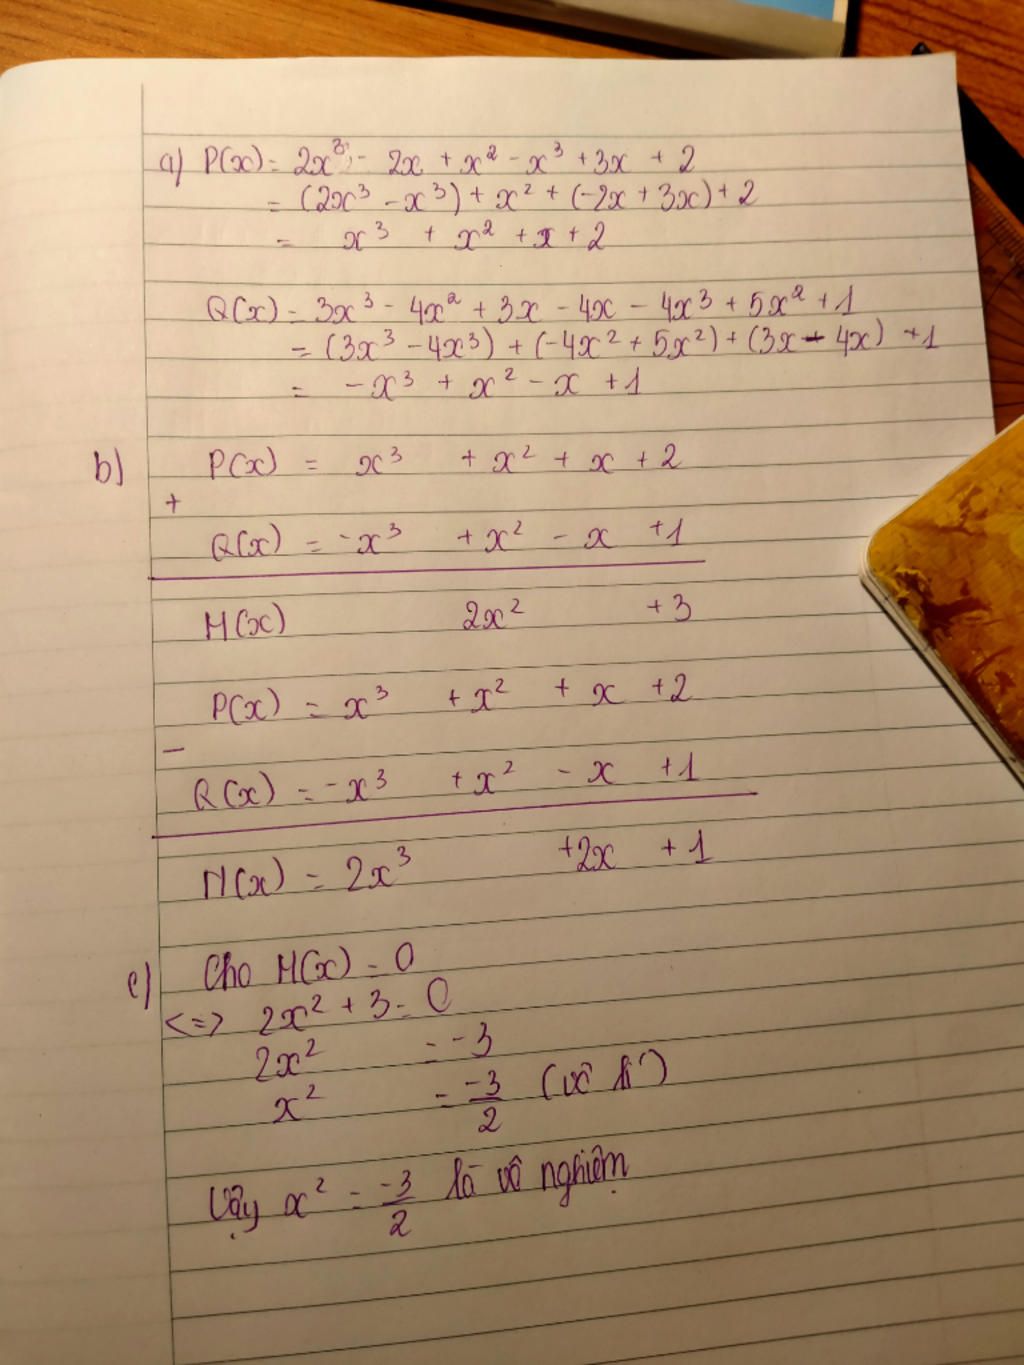 a) P(x) = 2x³ - 2x + x² - x³ + 3x + 2
= (2x³ - x³) + x² + (-2x + 3x) + 2
= x³ + x² + x + 2
Q(x) = 3x³ - 4x² + 3x - 4x - 4x³ + 5x² + 1
= (3x³ - 4x³) + (-4x² + 5x²) + (3x - 4x) + 1
= -x³ + x² - x + 1
b) P(x) = x³ + x² + x + 2
+
Q(x) = -x³ + x² - x + 1
M(x) 2x² + 3
P(x) = x³ + x² + x + 2
-
Q(x) = -x³ + x² - x + 1
N(x) = 2x³ + 2x + 1
c) Cho M(x) = 0
<=> 2x² + 3 = 0
2x² = -3
x² = -3/2 (vô lí)
Vậy x² = -3/2 là vô nghiệm